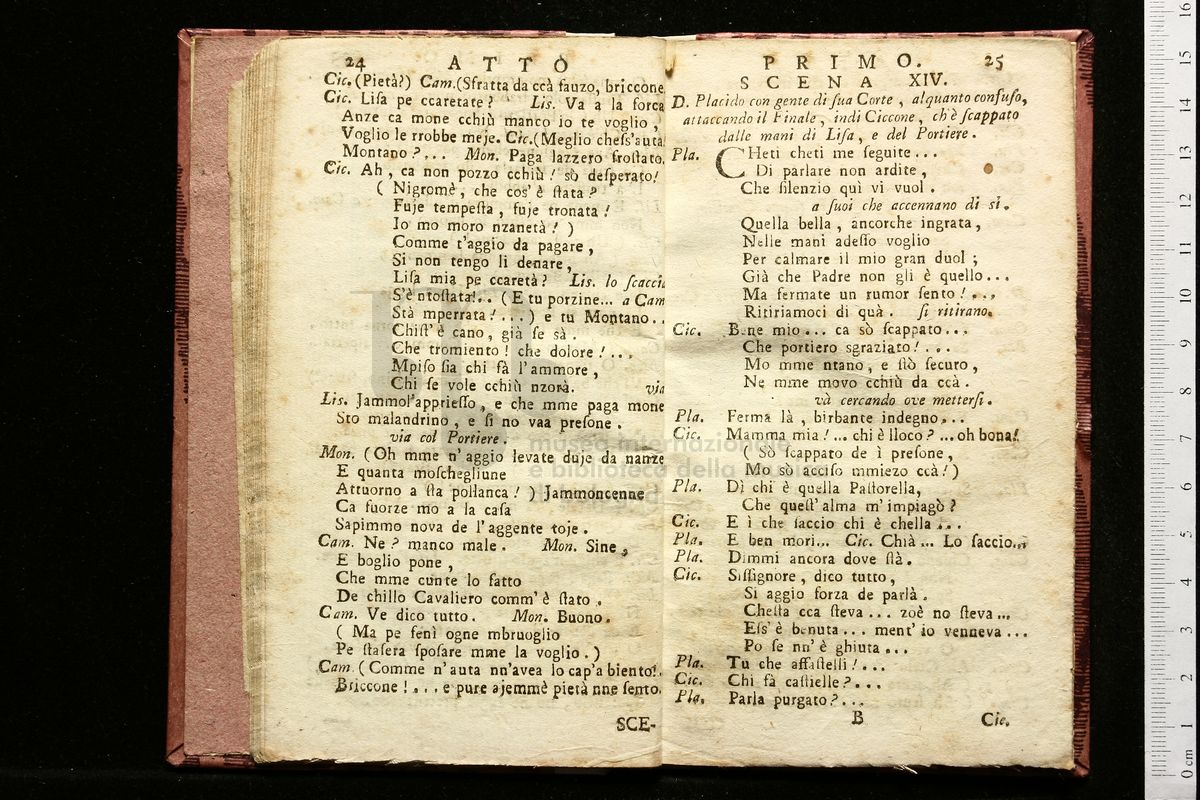 24 ATTO
Cic. (Pietà?) Cam. (Sfratta da ccà fauzo, briccone
Cic. Liſa pe ccaretate? Lis. Va a la forca
Anze ca mone cchiù manco io te voglio,
Voglio le rrobbe meje. Cic. (Meglio cheſs'auta
Montano?... Mon. Paga lazzero froſtato.
Cic. Ah, ca non pozzo cchiù! sò deſperato!
( Nigromè, che cos' è ſtata?
Fuje tempeſta, fuje tronata!
Io mo moro nzanetà! )
Comme t'aggio da pagare,
Si non tengo li denare,
Liſa mia pe ccaretà? Lis. lo ſcaccia
S'è ntoſtata!.. ( E tu porzine... a Cam
Stà mperrata!...) e tu Montano..
Chiſt' è cano, già ſe sà.
Che tromiento! che dolore!...
Mpiſo ſia chi fà l'ammore,
Chi ſe vole cchiù nzorà. via
Lis. Jammol'apprieſſo, e che mme paga mone
Sto malandrino, e ſi no vaa preſone.
via col Portiere.
Mon. (Oh mme n' aggio levate duje da nanze
E quanta moſchegliune
Attuorno a ſta pollanca! ) Jammoncenne
Ca fuorze mo a la caſa
Sapimmo nova de l'aggente toje.
Cam. Ne? manco male. Mon. Sine,
E boglio pone,
Che mme cunte lo fatto
De chillo Cavaliero comm' è ſtato.
Cam. Ve dico tutto. Mon. Buono.
( Ma pe fenì ogne mbruoglio
Pe ſtaſera ſpoſare mme la voglio. )
Cam. ( Comme n'auta nn'avea lo cap'a biento!
Briccone!... e pure ajemmè pietà nne ſento.
SCE-
PRIMO. 25
SCENA XIV.
D. Placido con gente di ſua Corte, alquanto confuſo,
attaccando il Finale, indi Ciccone, ch'è ſcappato
dalle mani di Liſa, e del Portiere.
Pla. CHeti cheti me ſeguite...
Di parlare non ardite,
Che ſilenzio quì vi vuol.
a ſuoi che accennano di sì.
Quella bella, ancorche ingrata,
Nelle mani adeſſo voglio
Per calmare il mio gran duol;
Già che Padre non gli è quello...
Ma fermate un rumor ſento!...
Ritiriamoci di quà. ſi ritirano.
Cic. Bene mio... ca sò ſcappato...
Che portiero sgraziato!...
Mo mme ntano, e ſtò ſecuro,
Ne mme movo cchiù da ccà.
và cercando ove metterſi.
Pla. Ferma là, birbante indegno...
Cic. Mamma mia!... chi è lloco?... oh bona!
( Sò ſcappato de ì preſone,
Mo sò acciſo mmiezo ccà! )
Pla. Dì chi è quella Paſtorella,
Che queſt' alma m' impiagò?
Cic. E ì che ſaccio chi è chella...
Pla. E ben mori... Cic. Chià... Lo ſaccio...
Pla. Dimmi ancora dove ſtà.
Cic. Siſſignore, dico tutto,
Si aggio forza de parlà.
Cheſta cca ſteva... zoè no ſteva...
Eſs' è benuta... ment' io venneva...
Po ſe nn' è ghiuta...
Pla. Tu che affaſtelli!...
Cic. Chi fà caſtielle?...
Pla. Parla purgato?...
B Cic.
museo internazionale
e biblioteca della musica